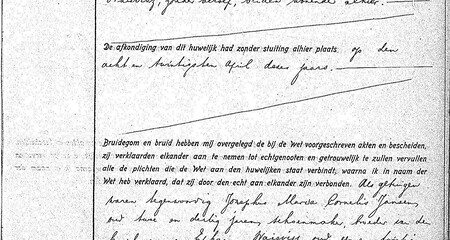 beroep, beiden wonende alhier.
De afkondiging van dit huwelijk had zonder stuiting alhier plaats op den
acht en twintigsten April dezes jaars.
Bruidegom en bruid hebben mij overgelegd de bij de Wet voorgeschreven akten en bescheiden,
zij verklaarden elkander aan te nemen tot echtgenooten en getrouwelijk te zullen vervullen
alle de plichten die de Wet aan den huwelijken staat verbindt, waarna ik in naam der
Wet heb verklaard, dat zij door den echt aan elkander zijn verbonden. Als getuigen
waren tegenwoordig Josephus Maria Cornelis Jansen,
oud twee en dertig jaren, schoenmaker, broeder van de